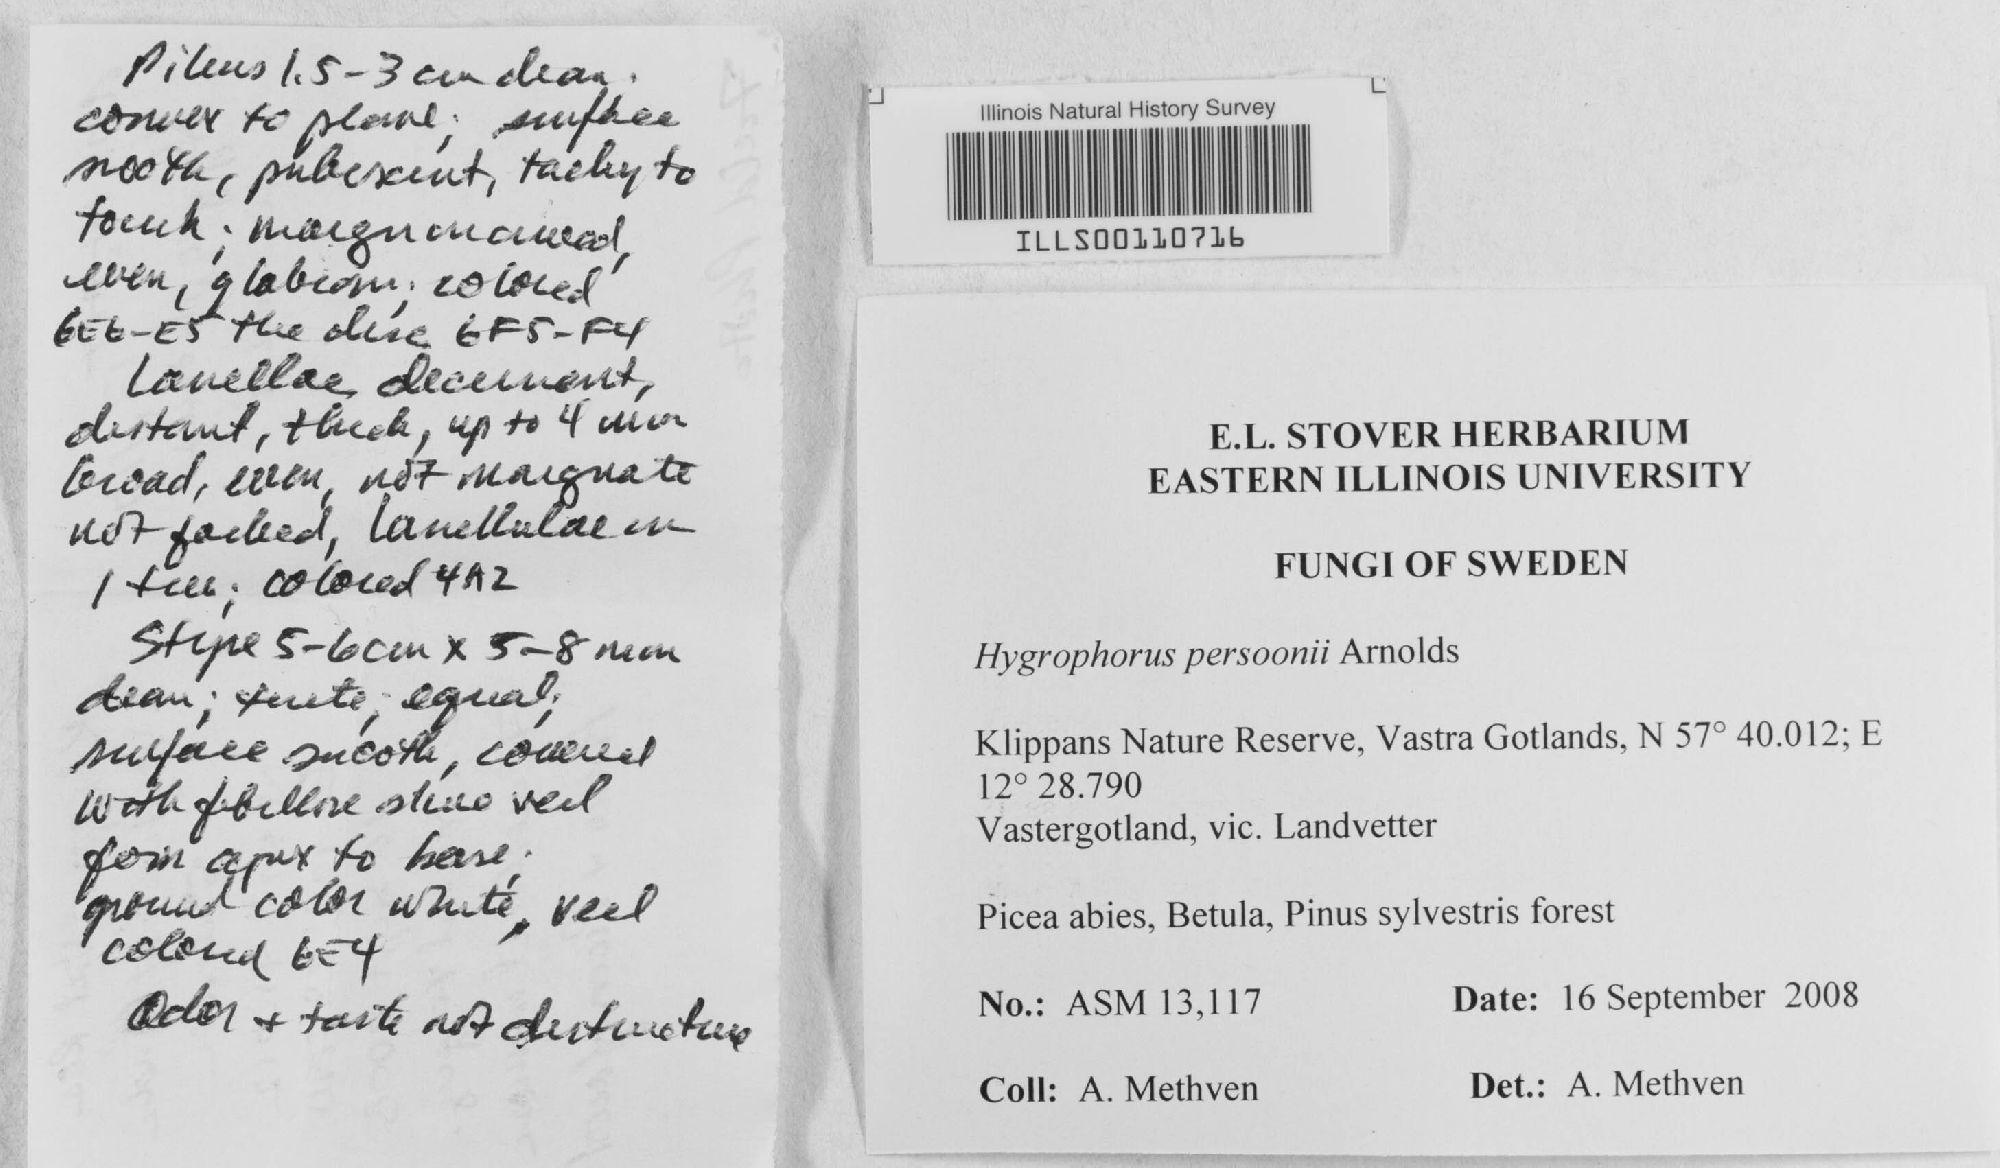 Pileus 1.5-3 cm diam.
convex to plane; surface
smooth, pubescent, tacky to
touch; margin incurved,
even, glabrous; colored
6E6-E5 the disc 6F5-F4
Lamellae decurrent,
distant, thick, up to 4 mm
broad, even, not marginate
not forked, lamellulae in
1 tier; colored 4A2
Stipe 5-6 cm x 5-8 mm
diam; terete; equal;
surface smooth, covered
with fibrillose veil
from apex to base;
ground color white, veil
colored 6E4
Odor + taste not distinctive
Illinois Natural History Survey
ILLS00110716
E.L. STOVER HERBARIUM
EASTERN ILLINOIS UNIVERSITY
FUNGI OF SWEDEN
Hygrophorus persoonii Arnolds
Klippans Nature Reserve, Vastra Gotlands, N 57° 40.012; E
12° 28.790
Vastergotland, vic. Landvetter
Picea abies, Betula, Pinus sylvestris forest
No.: ASM 13,117 Date: 16 September 2008
Coll: A. Methven Det.: A. Methven